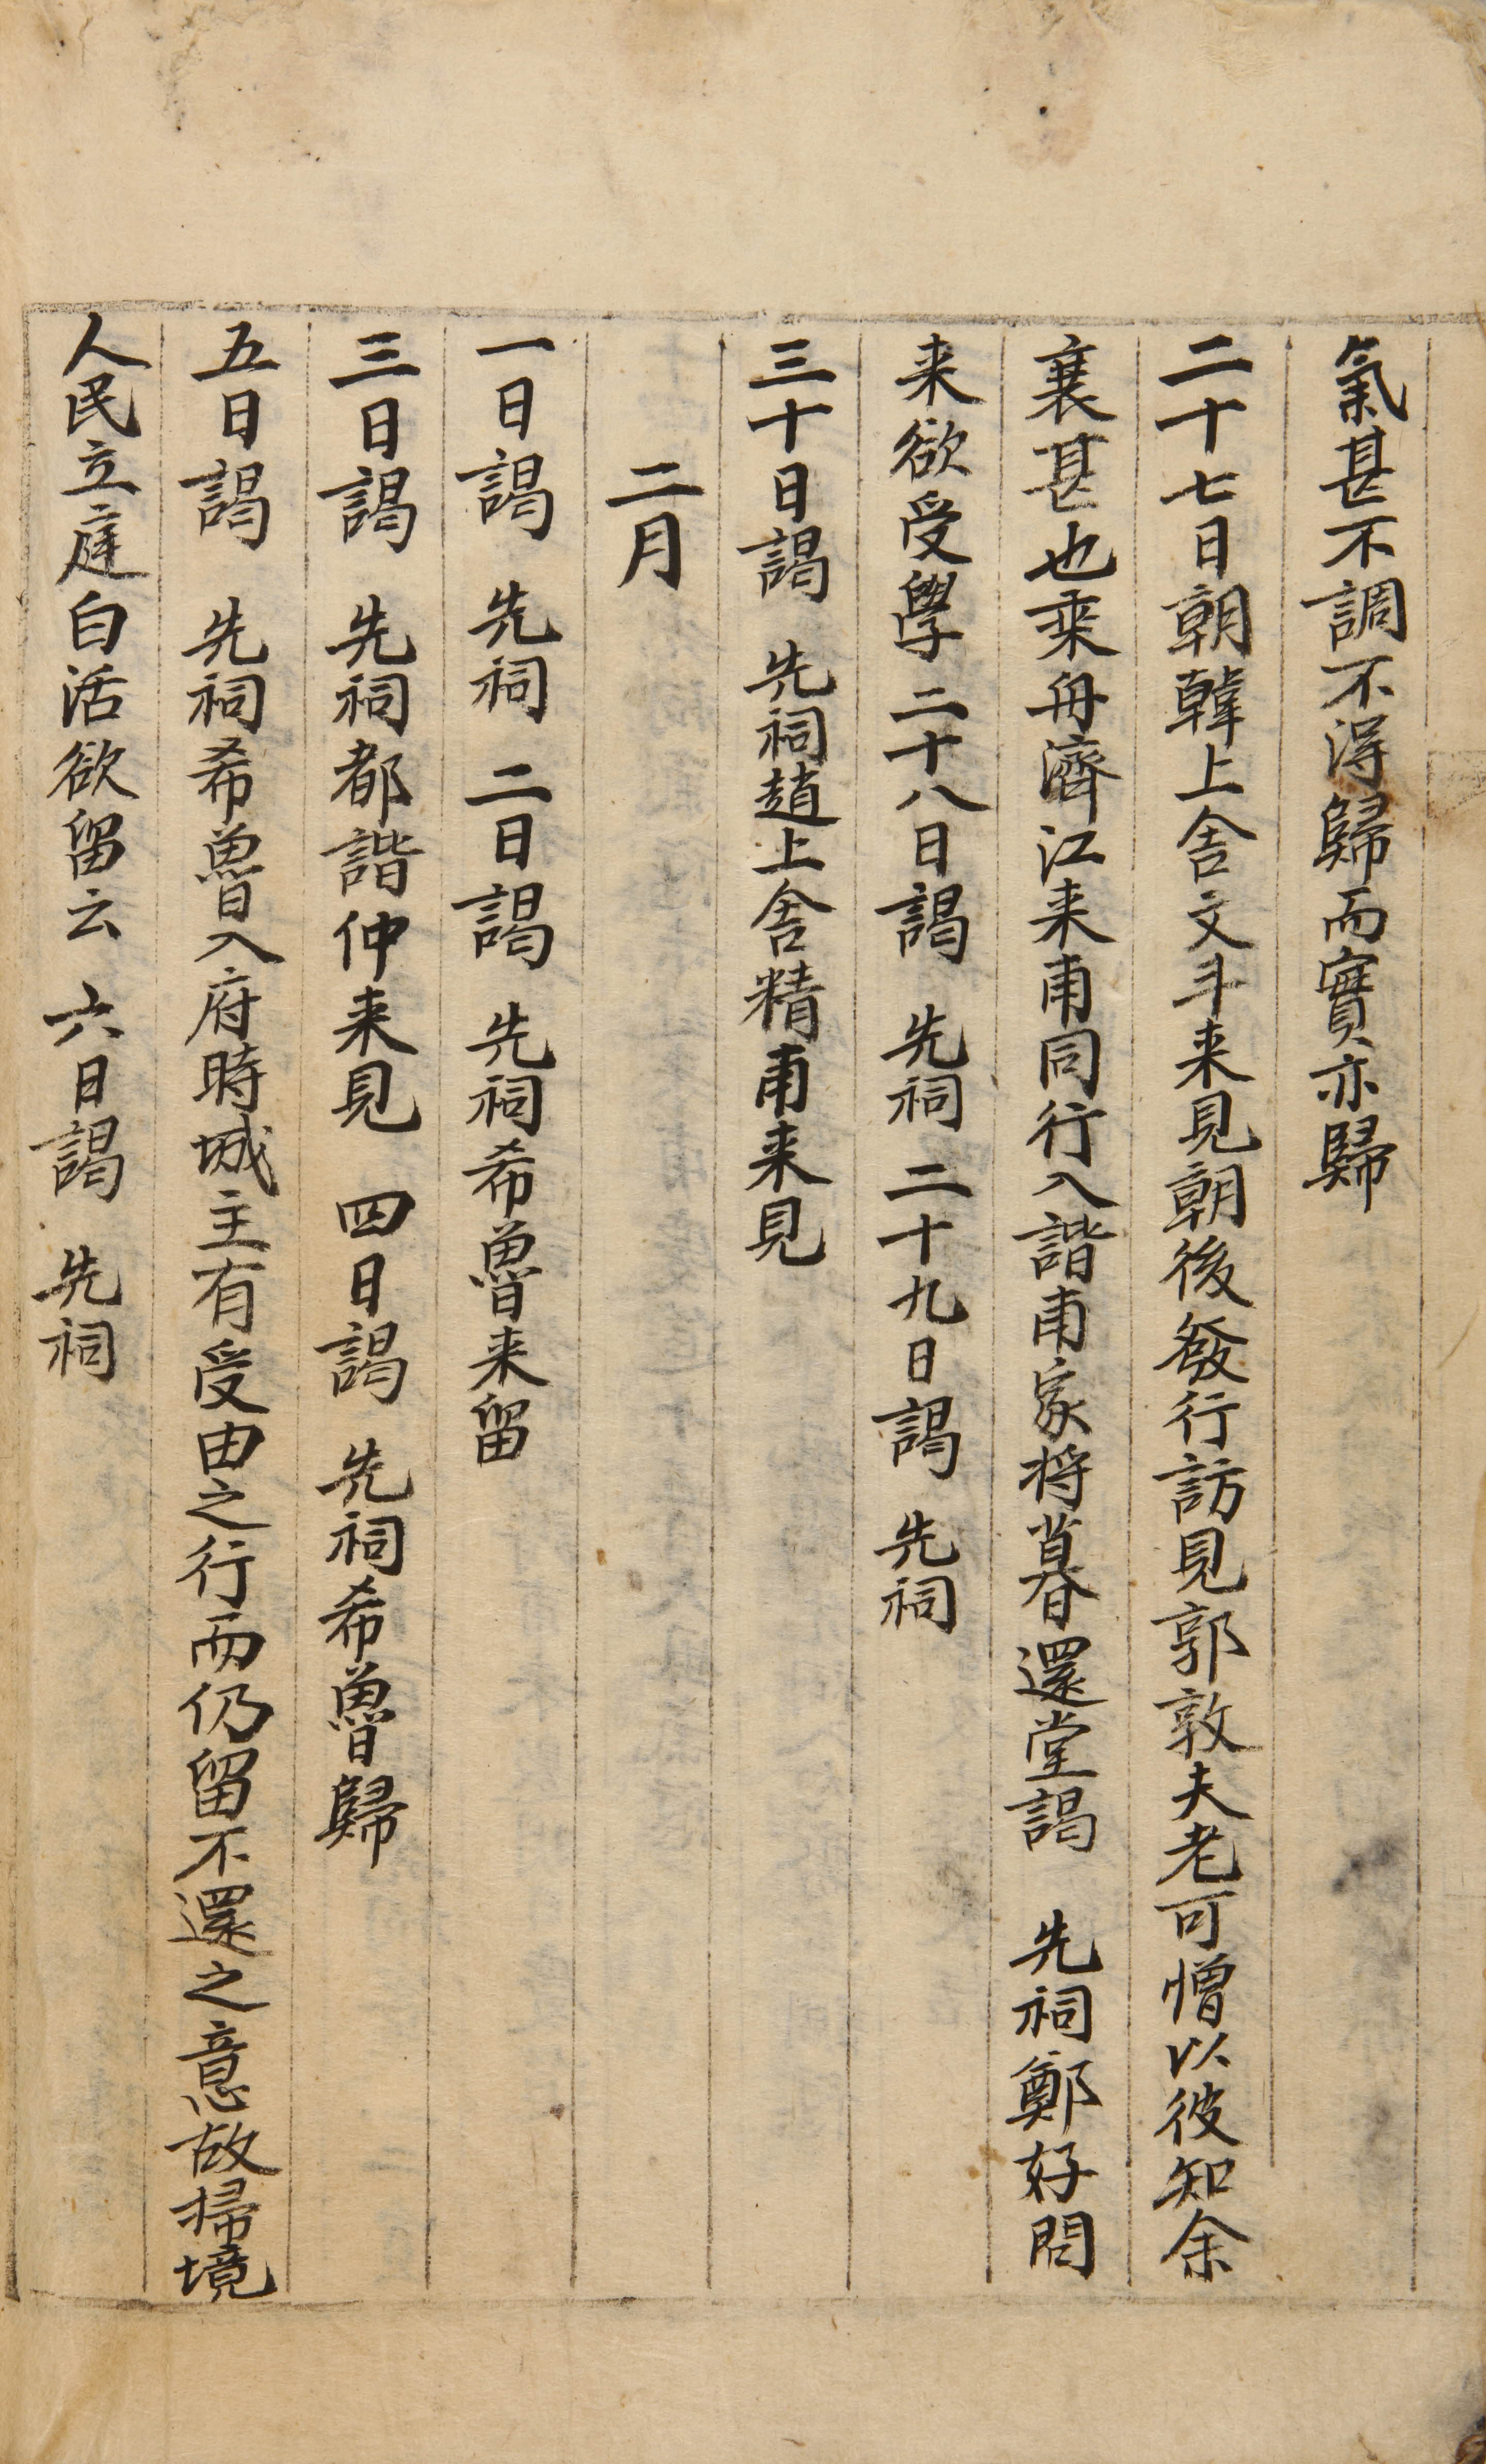 氣甚不調不得歸而實亦歸
二十七日朝韓上舍文斗来見朝後發行訪見郭敦夫老可憎以彼知余
襄甚也乘舟濟江来甫同行入諧甫家将暮還堂謁 先祠鄭好問
来欲受學 二十八日謁 先祠 二十九日謁 先祠
三十日謁 先祠趙上舍精甫来見
二月
一日謁 先祠 二日謁 先祠希魯来留
三日謁 先祠都諧仲来見 四日謁 先祠希魯歸
五日謁 先祠希魯入府時城主有受由之行而仍留不還之意故掃境
人民立庭白活欲留云 六日謁 先祠